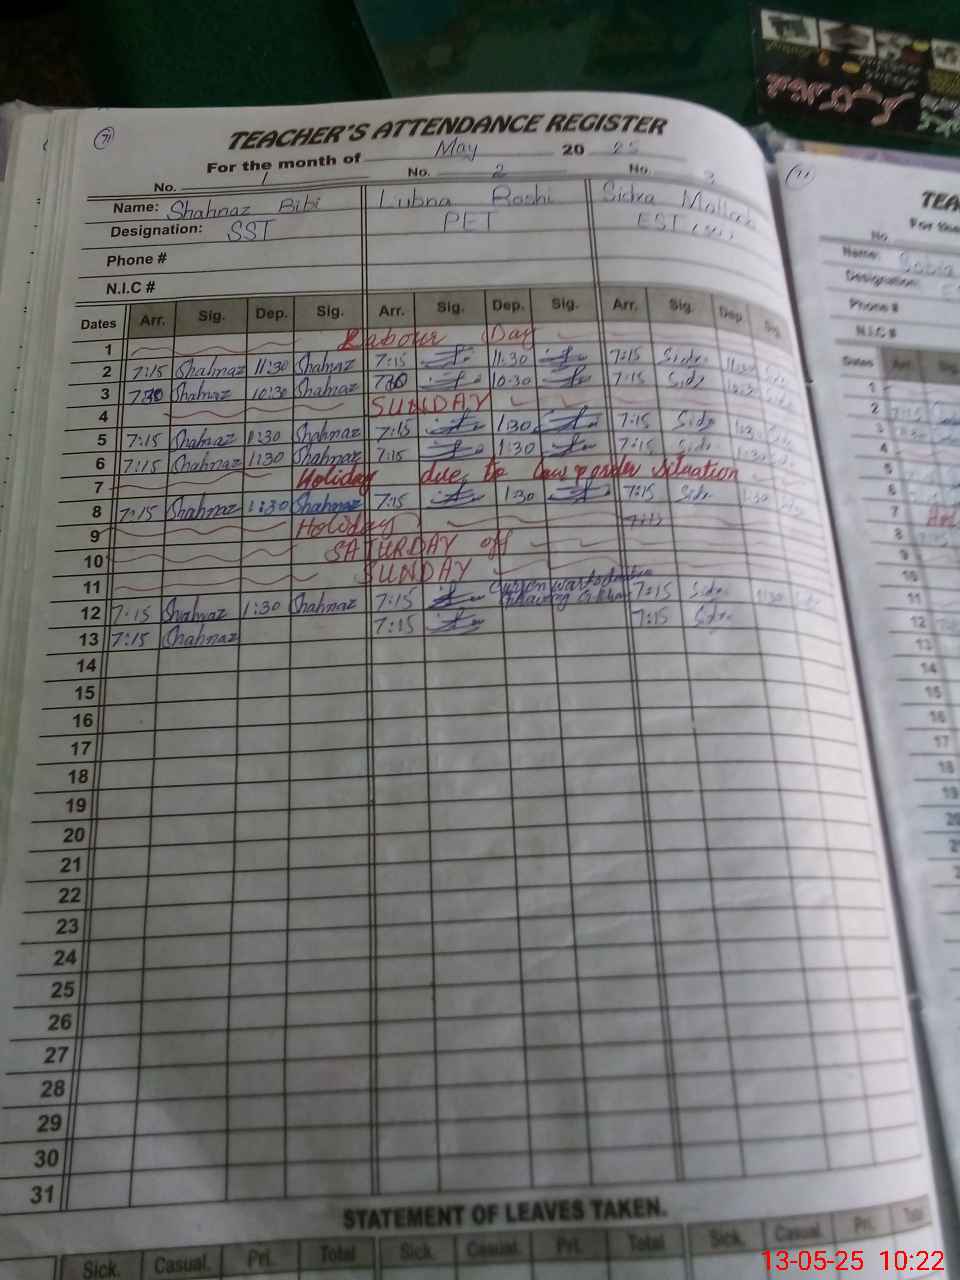 71
TEACHER'S ATTENDANCE REGISTER
For the month of May 20 25
No. 1 No. 2 No. 3
Name: Shahnaz Bibi Lubna Roohi Sidra
Designation: SST PET EST
Phone #
N.I.C #
Dates Arr. Sig. Dep. Sig. Arr. Sig. Dep. Sig. Arr. Sig. Dep. Sig.
1 Labour Day
2 7:15 Shahnaz 11:30 Shahnaz 7:15 11:30 7:15 Sidra 11:30
3 730 Shahnaz 10:30 Shahnaz 730 10:30 7:15 Sidra 10:30
4 SUNDAY
5 7:15 Shahnaz 1:30 Shahnaz 7:15 1:30 7:15 Sidra 1:30
6 7:15 Shahnaz 1:30 Shahnaz 7:15 1:30 7:15 Sidra 1:30
7 Holiday due to law & order situation
8 7:15 Shahnaz 1:30 Shahnaz 7:15 1:30 7:15 Sidra 1:30
9 Holiday 7:15
10 SATURDAY off
11 SUNDAY
12 7:15 Shahnaz 1:30 Shahnaz 7:15 7:15 Sidra 1:30
13 7:15 Shahnaz 7:15 7:15 Sidra
14
15
16
17
18
19
20
21
22
23
24
25
26
27
28
29
30
31
STATEMENT OF LEAVES TAKEN.
Sick. Casual. Pri. Total Sick. Casual. Pri. Total Sick. Casual. Pri. Total
71
TEA
For the
No
Name:
Designation:
Phone #
N.I.C #
Dates Arr. Sig.
1
2
3
4
5
6
7
8
9
10
11
12
13
14
15
16
17
18
19
20
13-05-25 10:22